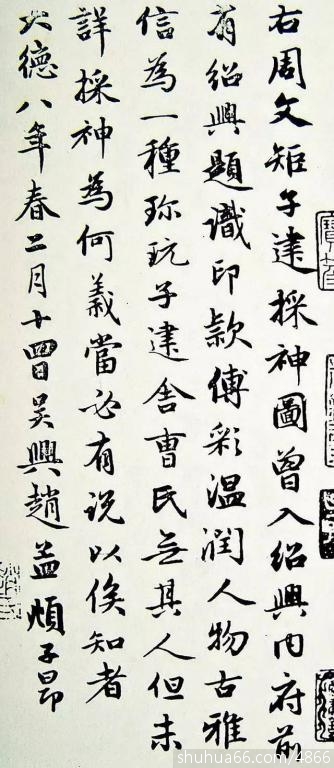 右周文矩子建採神圖曾入紹興內府前
有紹興題識印款傅彩溫潤人物古雅
信為一種珎玩子建舍曹氏無其人但未
詳採神為何義當必有說以俟知者
大德八年春二月十四日吳興趙孟頫子昂
shuhua66.com/4866